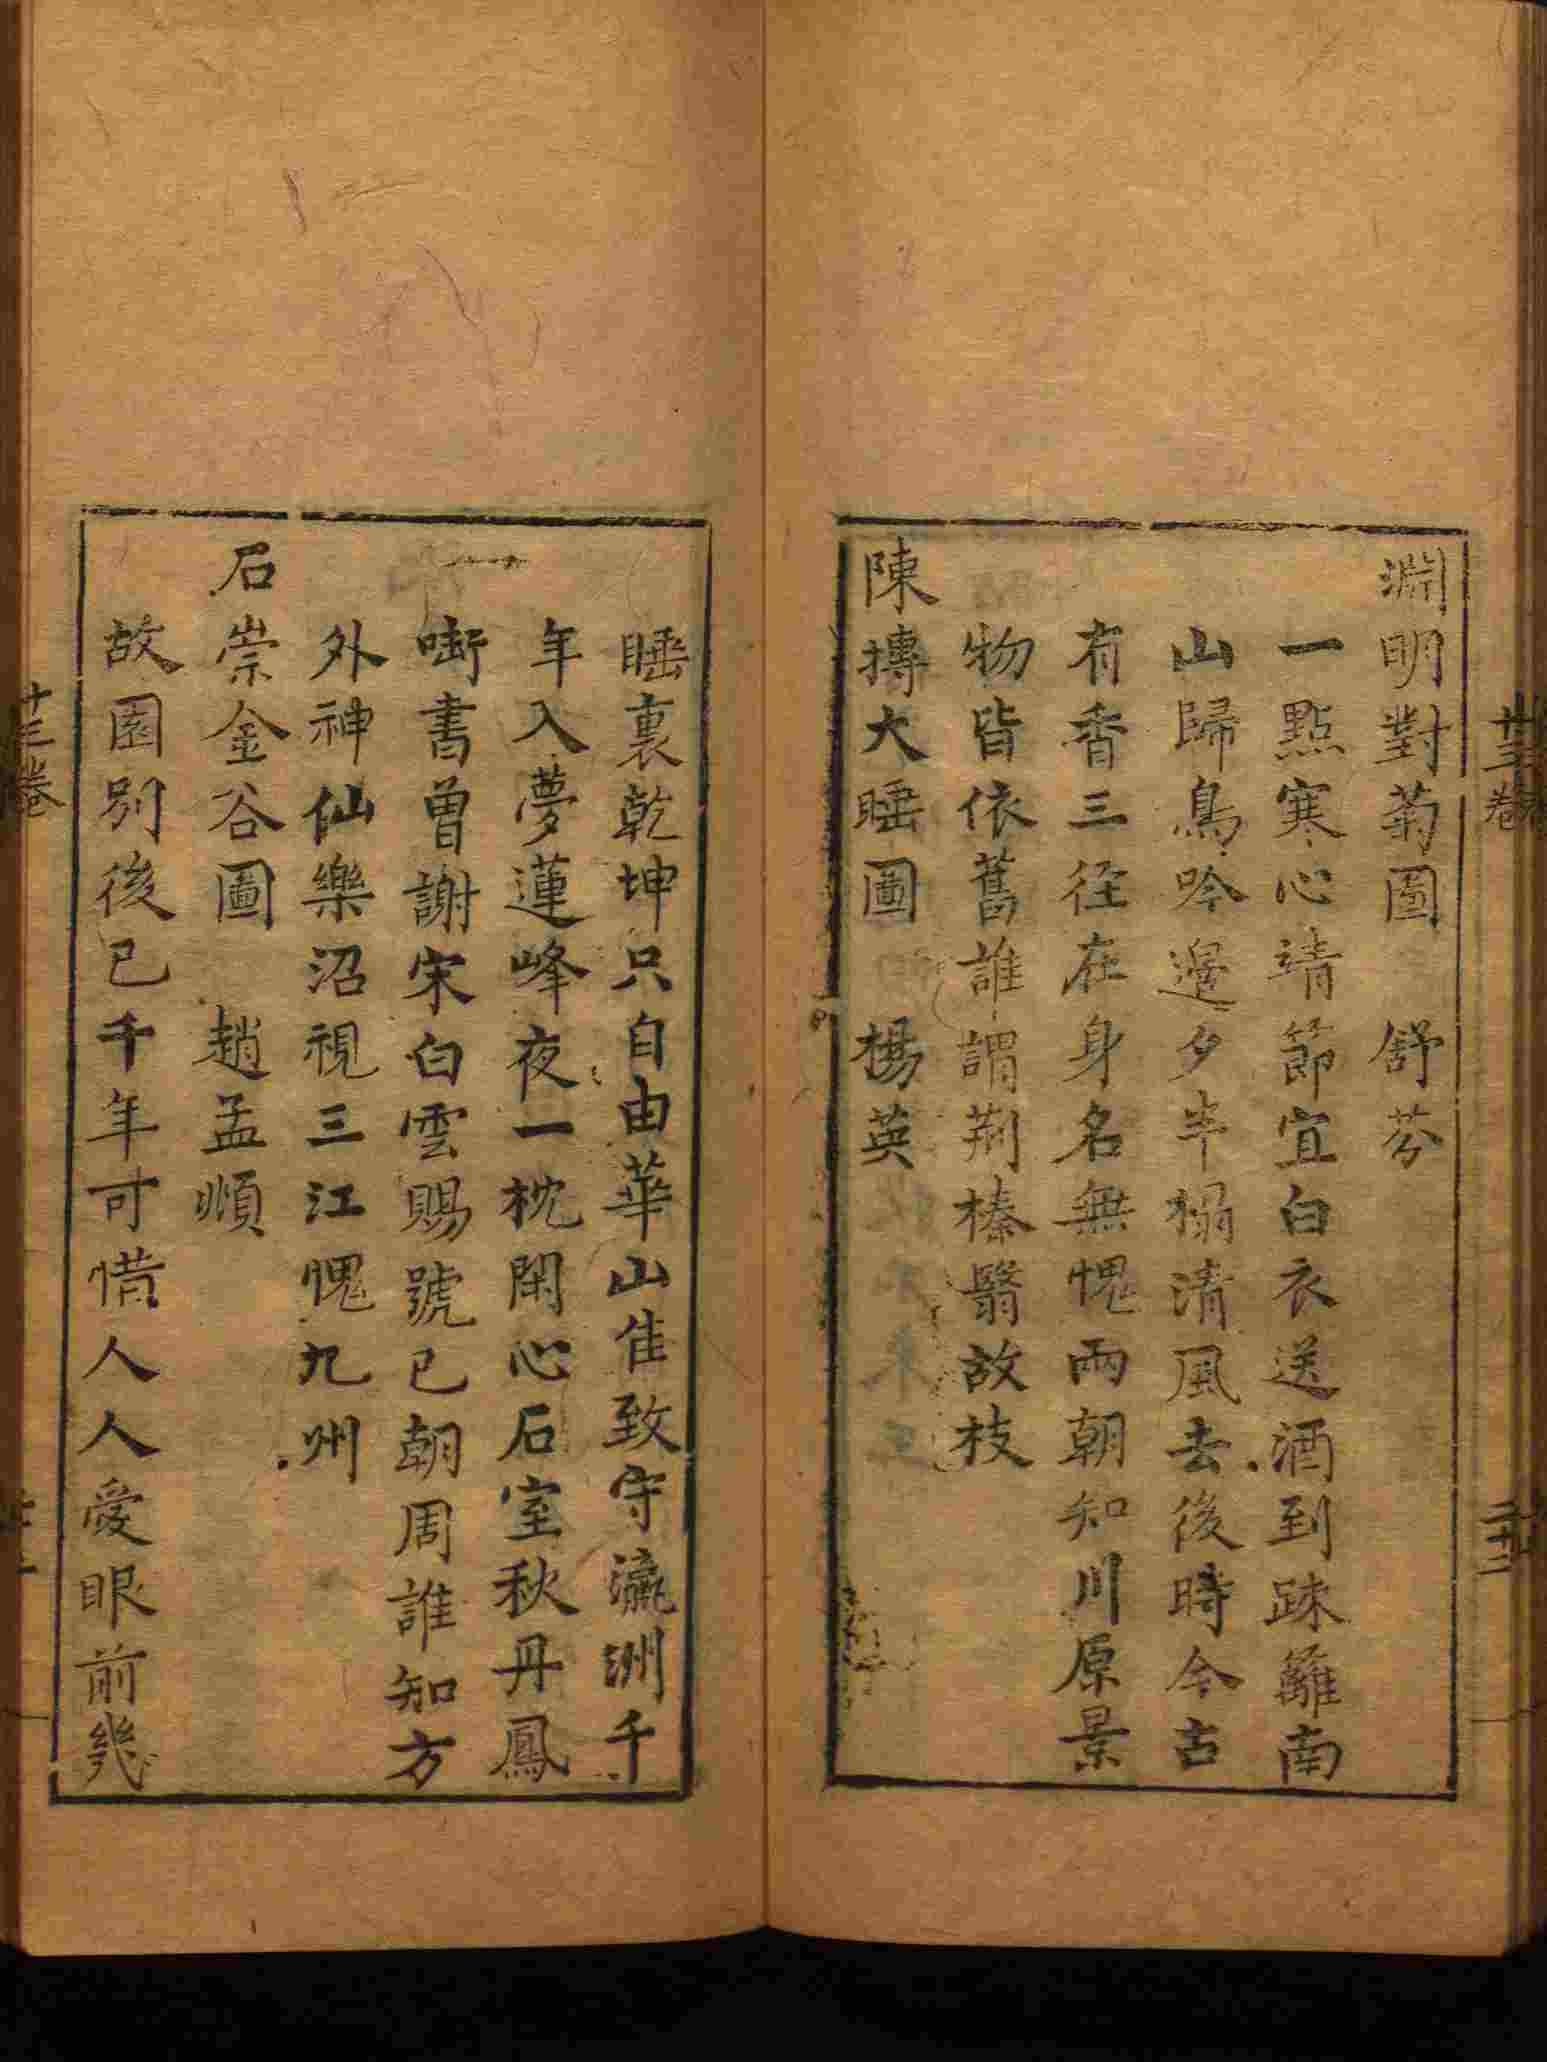 淵明對菊圖　舒芬
一點寒心靖節宜白衣送酒到踈籬南
山歸鳥吟邊夕半榻清風去後時今古
有香三徑在身名無愧兩朝知川原景
物皆依舊誰謂荆榛翳故枝
陳摶大睡圖　楊英
睡裏乾坤只自由華山佳致守瀛洲千
年入夢蓮峰夜一枕閑心石室秋丹鳳
啣書曾謝宋白雲賜號已朝周誰知方
外神仙樂沼視三江愧九州
石崇金谷圖　趙孟頫
故園別後已千年可惜人人愛眼前幾
十三卷